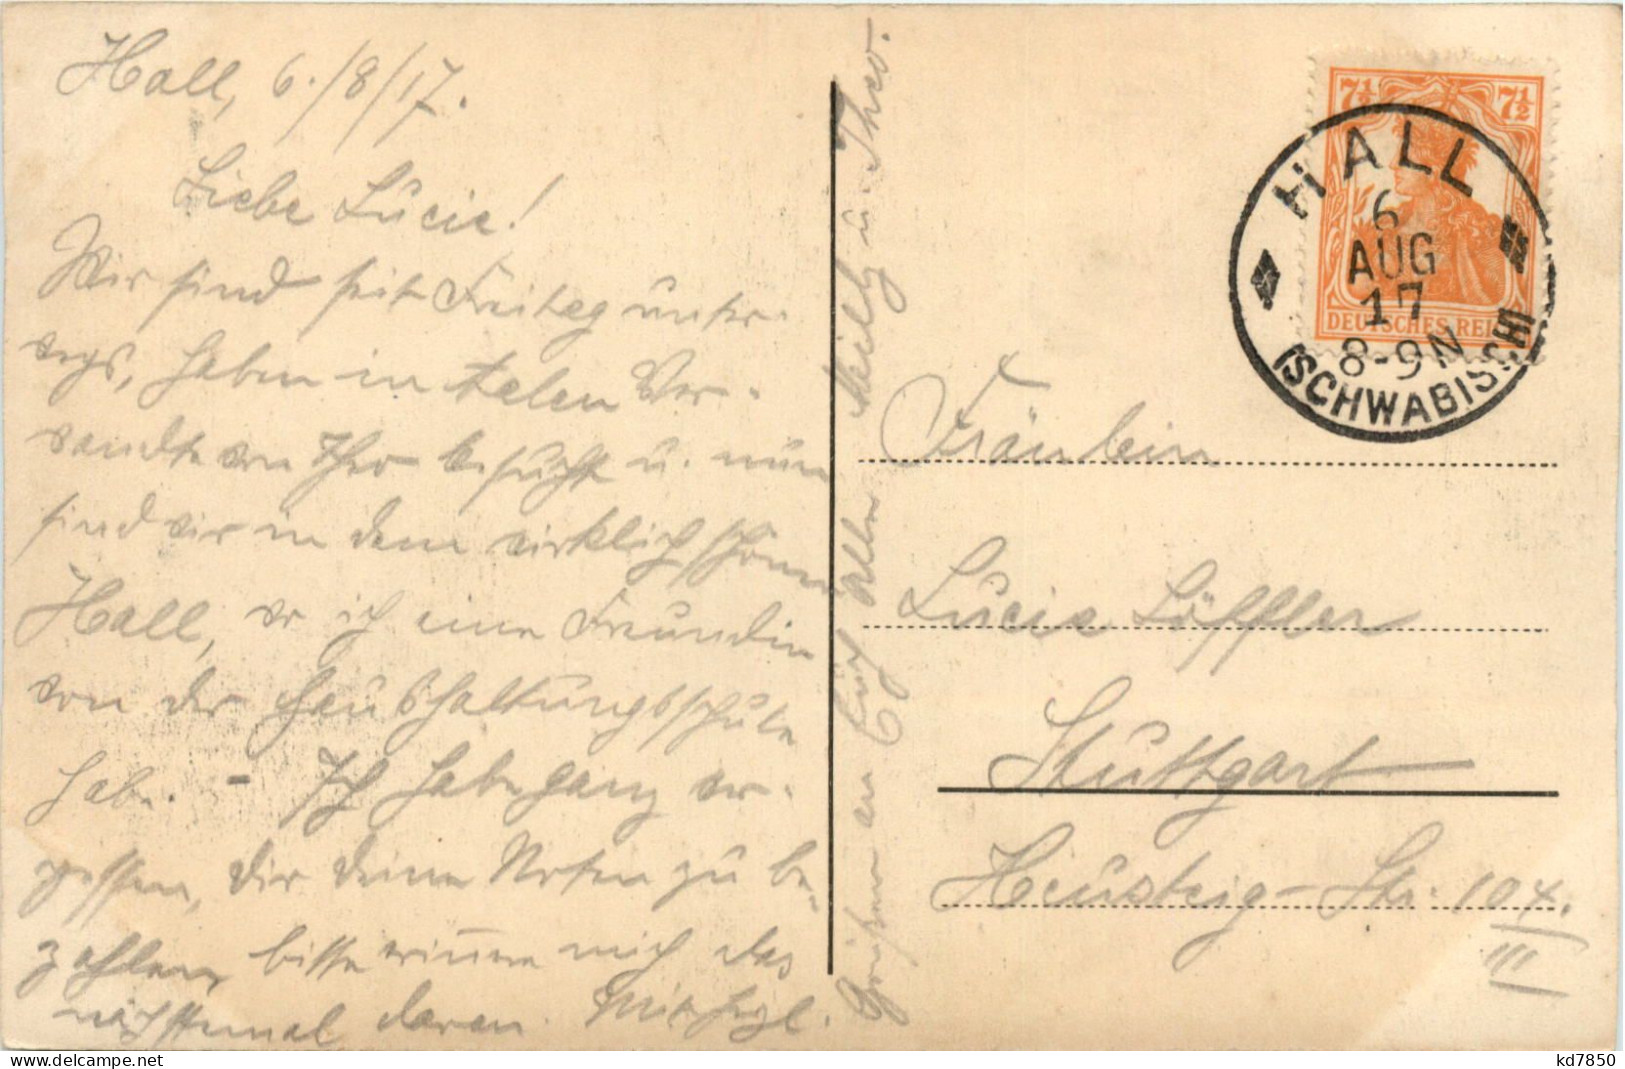 Hall, 6./8/17.
Liebe Lucie!
Wir sind seit Freitag unter-
wegs, haben in Aalen Ver-
wandte von Theo besucht u. nun
sind wir in dem wirklich schönen
Hall, wo ich eine Freundin
von der Haushaltungsschule
habe. - Ich habe ganz ver-
gessen, Dir Deine Noten zu be-
zahlen, bitte erinnere mich das
nächstemal daran. Mit herzl.
Grüßen an Euch Alle u. Theo.
7½ 7½
DEUTSCHES REICH
HALL
6
AUG
17
8-9N
(SCHWÄBISCH)
Fräulein
Lucie Löffler
Stuttgart
Heusteig-Str. 104.
III
kd7850